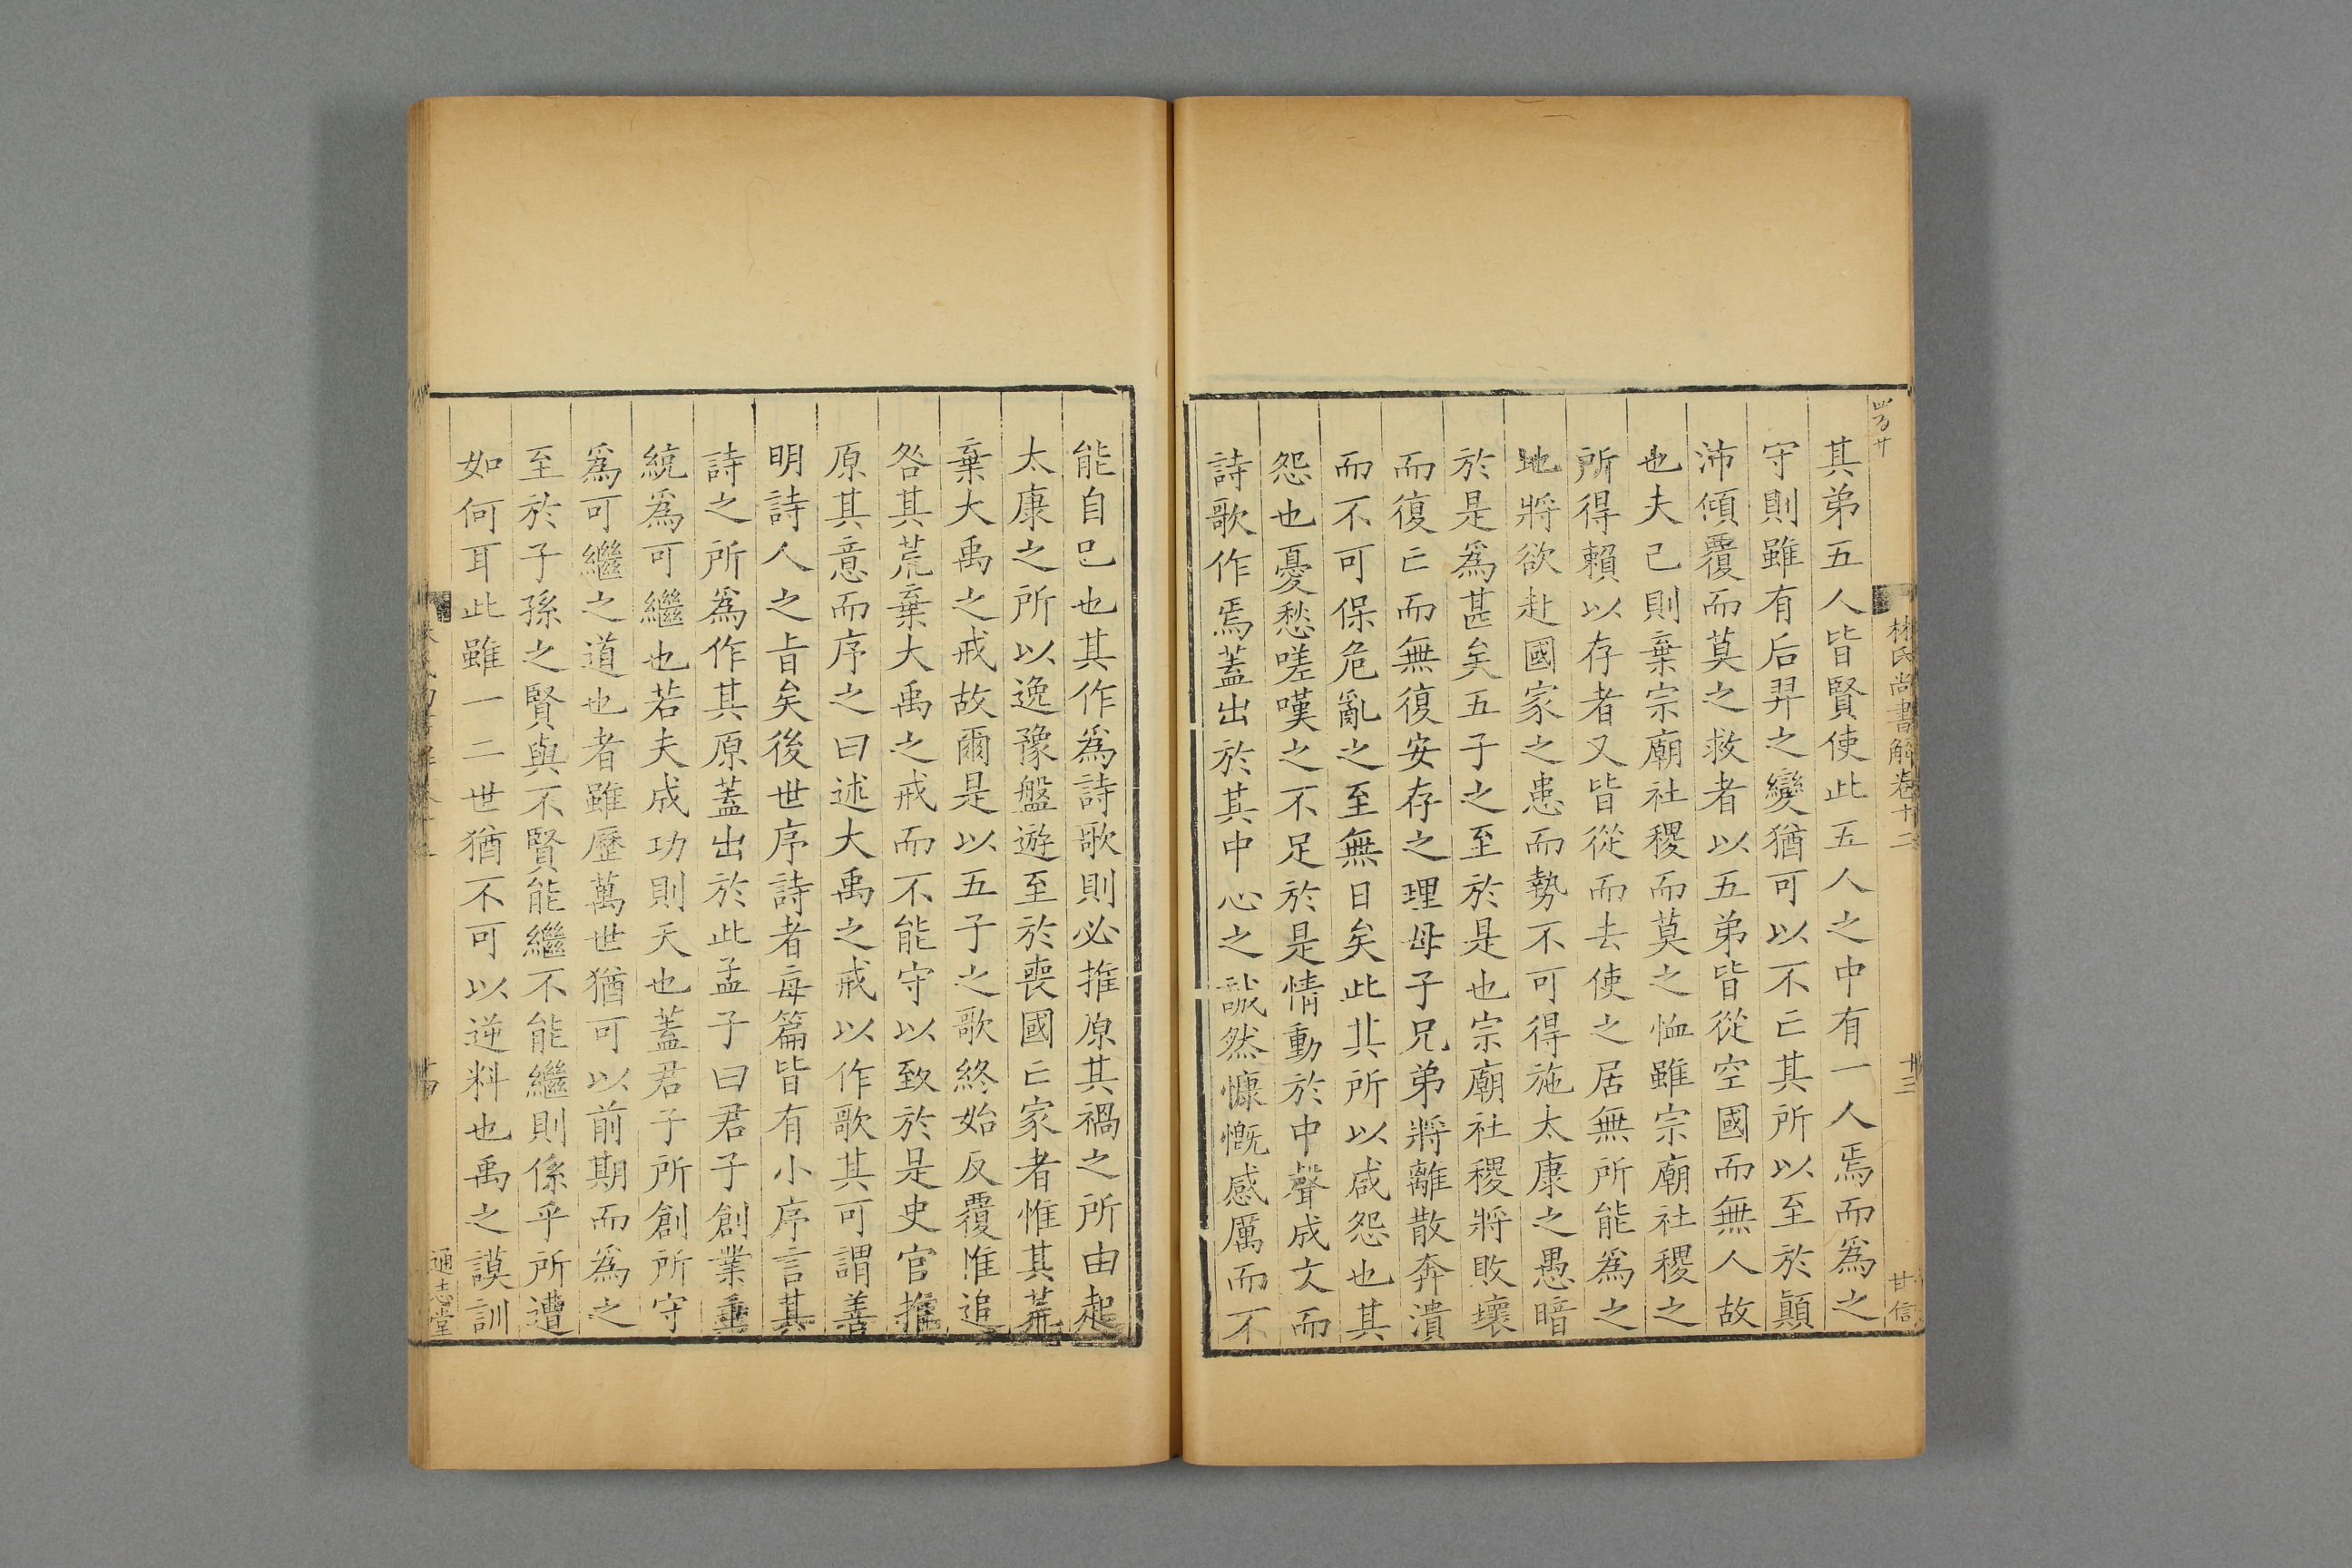 林氏尚書解卷十二
十三
甘信
其弟五人皆賢使此五人之中有一人焉而爲之
守則雖有后羿之變猶可以不亡其所以至於顚
沛傾覆而莫之救者以五弟皆從空國而無人故
也夫己則棄宗廟社稷而莫之恤雖宗廟社稷之
所得賴以存者又皆從而去使之居無所能爲之
地將欲赴國家之患而勢不可得施太康之愚暗
於是爲甚矣五子之至於是也宗廟社稷將敗壞
而復亡而無復安存之理母子兄弟將離散奔潰
而不可保危亂之至無日矣此其所以咸怨也其
怨也憂愁嗟嘆之不足於是情動於中聲成文而
詩歌作焉蓋出於其中心之誠然慷慨感厲而不
能自已也其作爲詩歌則必推原其禍之所由起
太康之所以逸豫盤遊至於喪國亡家者惟其荒
棄大禹之戒故爾是以五子之歌終始反覆惟追
咎其荒棄大禹之戒而不能守以致於是史官推
原其意而序之曰述大禹之戒以作歌其可謂善
明詩人之旨矣後世序詩者每篇皆有小序言其
詩之所爲作其原蓋出於此孟子曰君子創業垂
統爲可繼也若夫成功則天也蓋君子所創所守
爲可繼之道也者雖歷萬世猶可以前期而爲之
至於子孫之賢與不賢能繼不能繼則係乎所遭
如何耳此雖一二世猶不可以逆料也禹之謨訓
通志堂